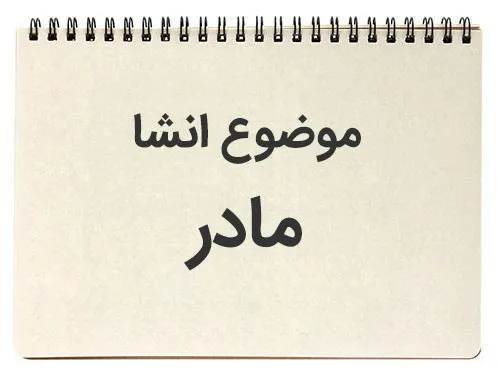 موضوع انشا
مادر